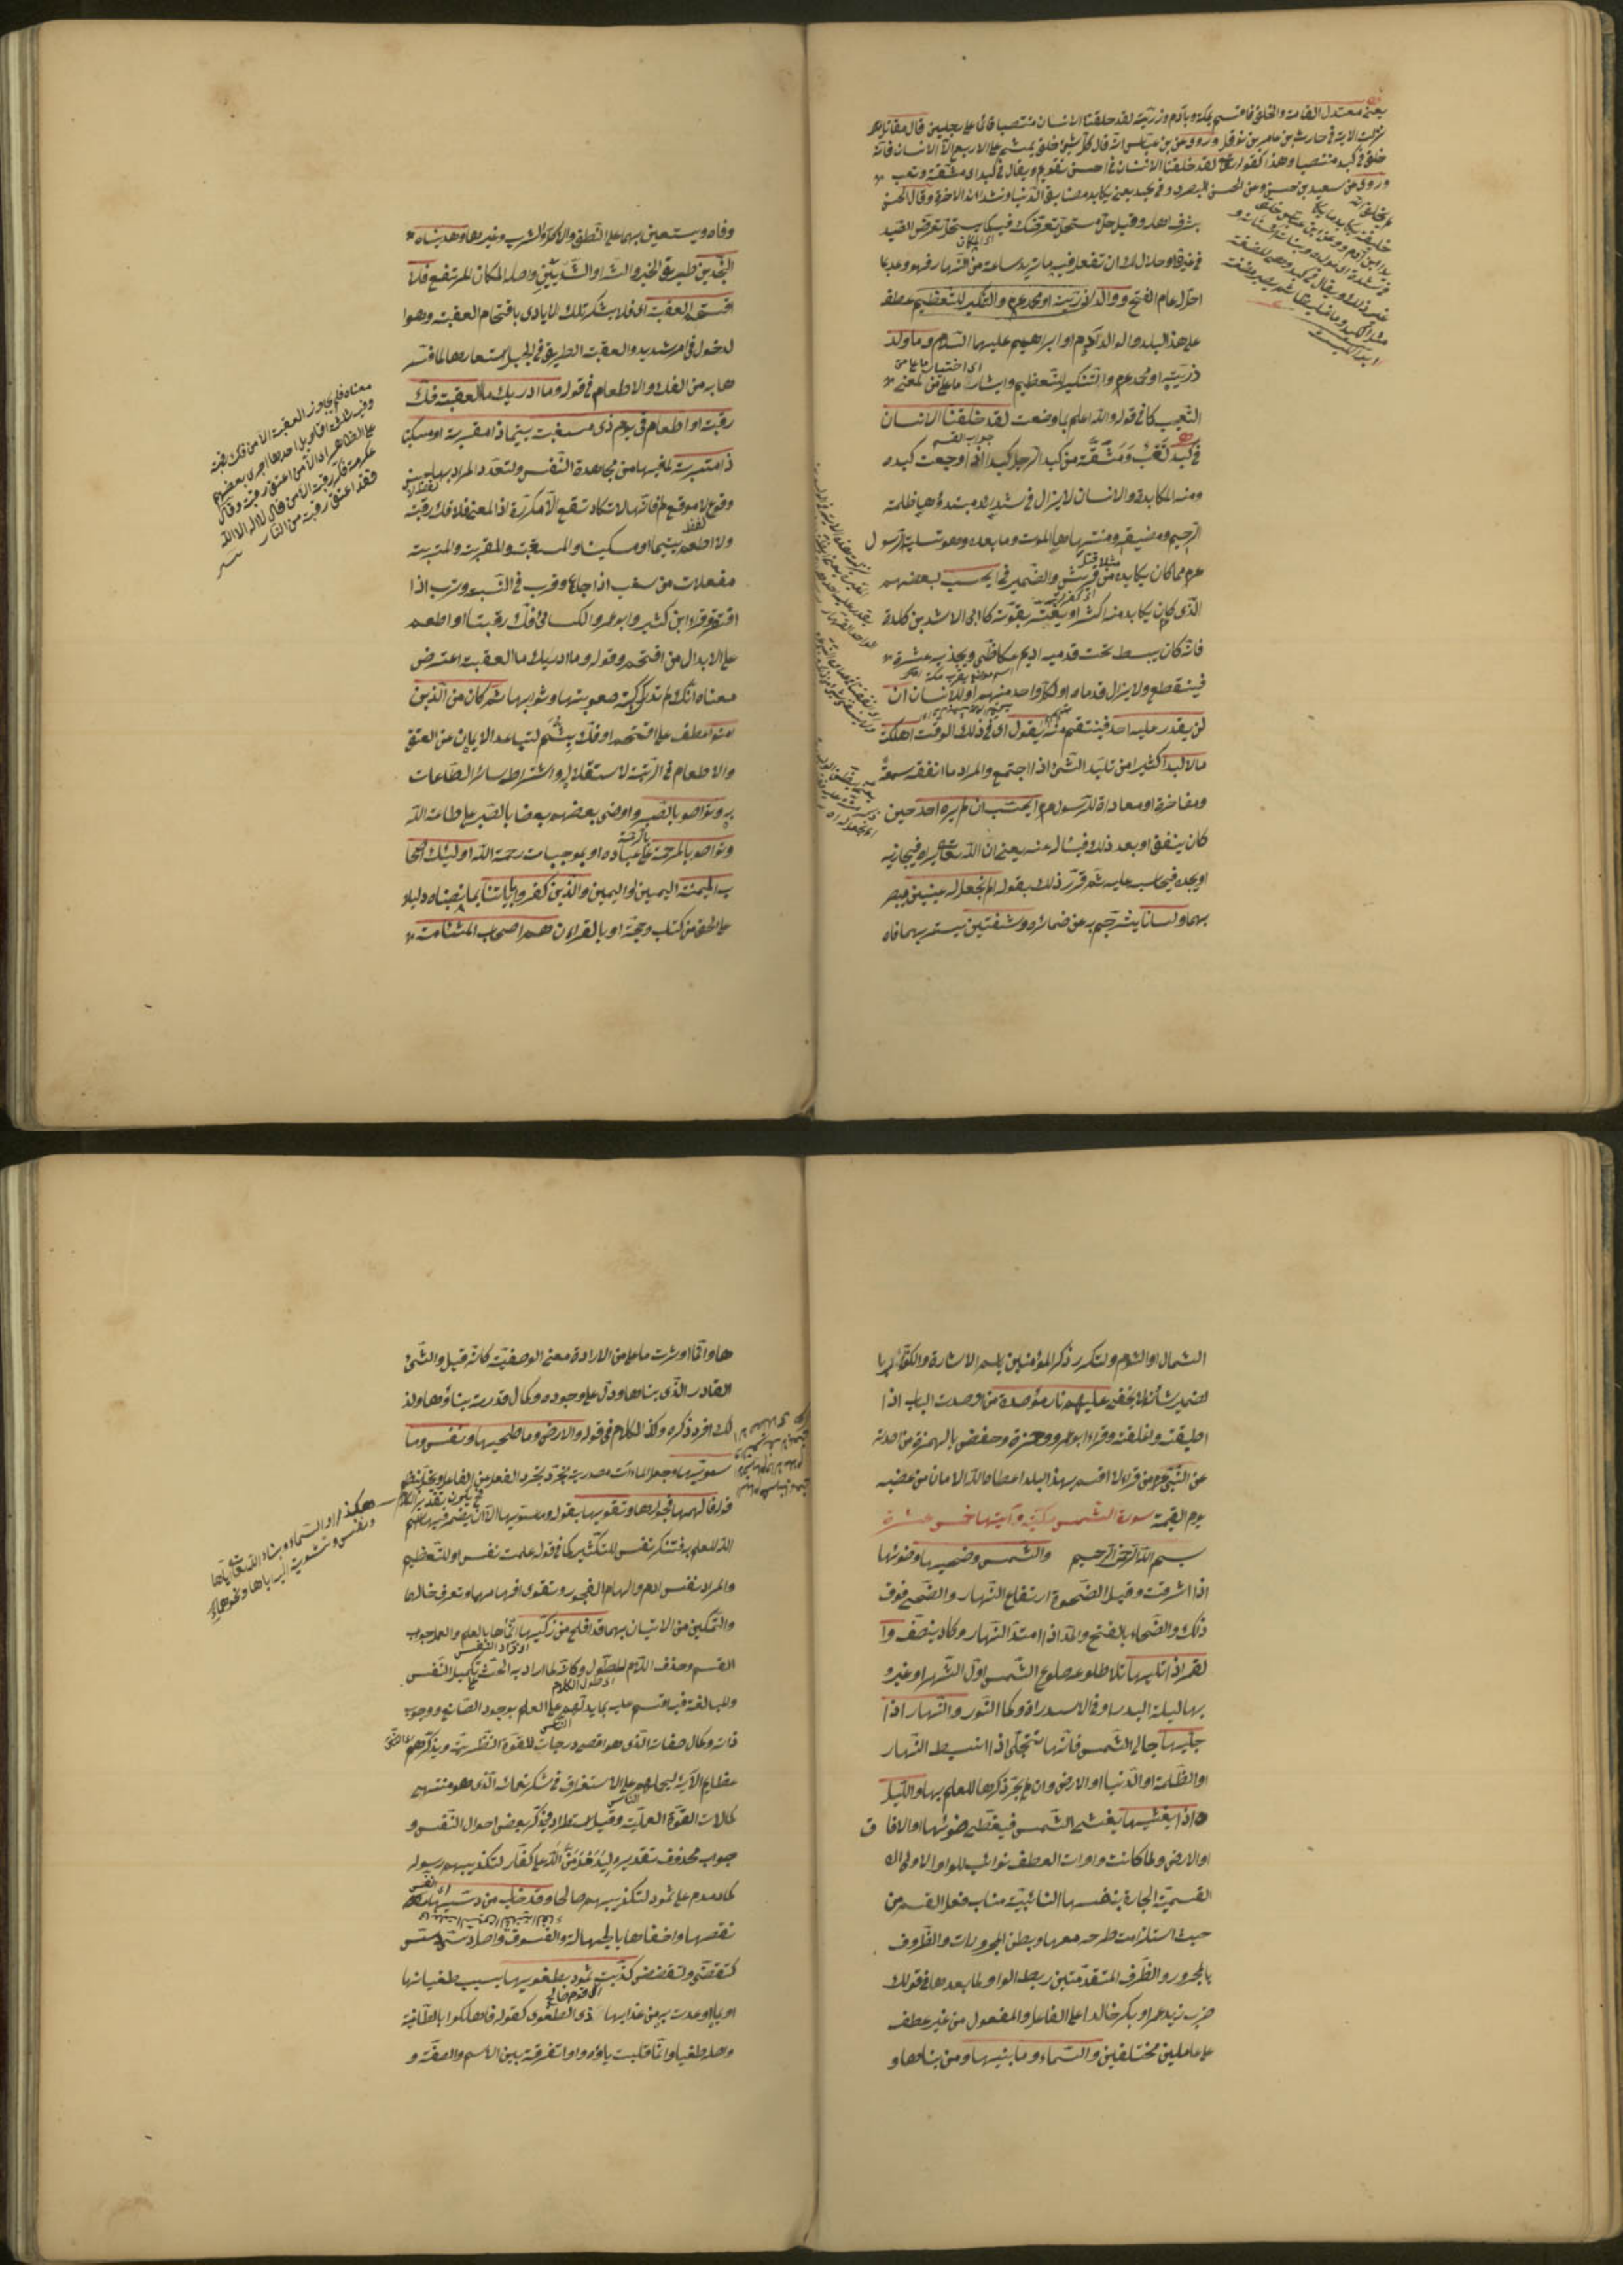 يعني معتدل القامة والخلق فاقسم بمكة وبآدم وذريته لقد خلقنا الانسان منتصبا قائما على رجلين قال مقاتل
نزلت الاية في حارث بن عامر بن نوفل وروى عن ابن عباس انه قال كل شئ خلق يمشي على الاربع الا الانسان فانه
خلق في كبد منتصبا وهذا كقوله لقد خلقنا الانسان في احسن تقويم ويقال في كبد اى مشقة وتعب
وروى عن سعيد بن حسن وعن الحسن البصرى في كبد يعنى يكابد مصائب الدنيا وشدائد الاخرة وقال الحسن
بشرف اهله وقيل حل مستحل تعرضك فيه كما يستحل تعرض الصيد
في غيره او حلال لك ان تفعل فيه ما تريد ساعة من النهار فهو وعد بما
احل له عام الفتح ووالد اى ذريته او محمد عم والتنكير للتعظيم عطف
على هذا البلد والوالد آدم او ابراهيم عليهما السلام وما ولد
ذريته او محمد عم والتنكير للتعظيم وايثار ما على من لمعنى
التعجب كما في قوله والله اعلم بما وضعت لقد خلقنا الانسان
في كبد تعب ومشقة من كبد الرجل كبدا اذا اوجعت كبده
ومنه المكابدة والانسان لا يزال في شدائد مبتدؤها ظلمة
الرحم ومضيقه ومنتهاها الموت وما بعده وهو تسلية للرسول
عم مما كان يكابده من قريش والضمير في ايحسب لبعضهم
الذى كان يكابد منه اكثر او يغتر بقوته كابى الاشد بن كلدة
فانه كان يبسط تحت قدميه اديم عكاظى ويجذبه عشرة
فينقطع ولا يزال قدماه او لكل واحد منهم او للانسان ان
لن يقدر عليه احد فينتقم منه يقول اى في ذلك الوقت اهلكت
مالا لبدا كثيرا من تلبد الشئ اذا اجتمع والمراد ما انفقه سمعة
ومفاخرة او معاداة للرسول عم ايحسب ان لم يره احد حين
كان ينفق او بعد ذلك فيسأل عنه يعنى ان الله تعالى يراه فيجازيه
او يجده فيحاسبه عليه ثم قرر ذلك بقوله الم نجعل له عينين يبصر
بهما ولسانا يترجم به عن ضمائره وشفتين يستر بهما فاه
وفاه ويستعين بهما على النطق والاكل والشرب وغيرها وهديناه
النجدين طريق الخير والشر او الثديين واصله المكان المرتفع فلا
اقتحم العقبة اى فلا يشكر تلك الايادى باقتحام العقبة وهو ا
لدخول في امر شديد والعقبة الطريق في الجبل استعارها لما فسر
ها به من الفك والاطعام في قوله وما ادريك ما العقبة فك
رقبة او اطعام في يوم ذى مسغبة يتيما ذا مقربة او مسكينا
ذا متربة لما فيهما من مجاهدة النفس ولتعدد المراد بها حسن
وقوع لا موقع لم فانها لا تكاد تقع الا مكررة اذ المعنى فلا فك رقبة
ولا اطعم يتيما او مسكينا والمسغبة والمقربة والمتربة
مفعلات من سغب اذا جاع وقرب في النسب وترب اذا
افتقر وقرا ابن كثير وابو عمرو والكسائى فك رقبة او اطعم
على الابدال من اقتحم وقوله وما ادريك ما العقبة اعتراض
معناه انك لم تدر كنه صعوبتها وثوابها ثم كان من الذين
امنوا عطف على اقتحم او فك بثم لتباعد الايمان عن العتق
والاطعام في الرتبة لاستقلاله واشتراط سائر الطاعات
به وتواصوا بالصبر واوصى بعضهم بعضا بالصبر على طاعة الله
وتواصوا بالمرحمة على عباده او بموجبات رحمة الله اولئك اصحا
ب الميمنة اليمين او اليمن والذين كفروا باياتنا بما نصبناه دليلا
على الحق من كتاب وحجة او بالقرءان هم اصحاب المشئامة
معناه فلم يجاوز العقبة الا من فك رقبة
وفيه ثلثة اقاويل احدها اجرى بعضهم
على الظاهر اى الا من اعتق رقبة وقال
عكرمة فك رقبة الا من قال لا اله الا الله
فقد اعتق رقبة من النار
الشمال او الشوم ولتكرير ذكر المؤمنين باسم الاشارة والكفار با
لضمير شأن لا يخفى عليهم نار مؤصدة من اوصدت الباب اذا
اطبقته واغلقته وقرا ابو عمرو وحمزة وحفص بالهمزة من اصدته
عن النبى عم من قرا لا اقسم بهذا البلد اعطاه الله الامان من غضبه
يوم القيمة سورة الشمس مكية وآيتها خمس عشرة
بسم الله الرحمن الرحيم والشمس وضحيها وضوئها
اذا اشرقت وقيل الضحوة ارتفاع النهار والضحى فوق
ذلك والضحاء بالفتح والمد اذا امتد النهار وكاد ينصف وا
لقمر اذا تليها تلا طلوعه طلوع الشمس اول الشهر او غيرو
بها ليلة البدر او في الاستدارة وكمال النور والنهار اذا
جليها جلى الشمس فانها تتجلى اذا انبسط النهار
او الظلمة او الدنيا او الارض وان لم يجر ذكرها للعلم بها والليل
اذا يغشيها يغشى الشمس فيغطى ضوئها او الافاق
او الارض ولما كانت واوات العطف نوائب للواو الاولى ال
القسمية الجارة بنفسها النائبة مناب فعل القسم من
حيث استلزمت طرحه معها وبطن المجرورات والظروف
بالمجرور والظرف المتقدمتين ربط الواو لما بعدها في قولك
ضرب زيد عمرا وبكر خالدا على الفاعل والمفعول من غير عطف
على عاملين مختلفين والسماء وما بنيها ومن بناها و
ها وانما اوثرت ما على من لارادة معنى الوصفية كانه قيل والشئ
القادر الذى بناها ودل على وجوده وكمال قدرته بناؤها ولذ
لك افرد ذكره وكذا الكلام في قوله والارض وما طحيها ونفس وما
سويها وجعل الماءات مصدرية يجرد الفعل عن الفاعل ويخل بنظم
قوله فالهمها فجورها وتقويها بقوله وما سويها الا ان يضمر فيها اسم
الله للعلم به وتنكير نفس للتكثير كما في قوله علمت نفس او للتعظيم
والمراد نفس ادم والهام الفجور وتقوى افهامهما وتعرف حالهما
والتمكين من الاتيان بهما قد افلح من زكيها انماها بالعلم والعمل جواب
القسم وحذف اللام للطول وكانه لما اراد به الحث على تكميل النفس
والمبالغة فيه اقسم عليه بما يدلهم على العلم بوجود الصانع ووجوب
ذاته وكمال صفاته الذى هو اقصى درجات القوة النظرية ويذكرهم
عظايم آلائه ليحملهم على الاستغراق في شكر نعمائه الذى هو منتهى
كمالات القوة العملية وقيل استطراد يذكر بعض احوال النفس و
جواب محذوف تقديره ليدمدمن الله على كفار لتكذيبهم رسوله
كما دمدم على ثمود لتكذيبهم صالحا وقد خاب من دسيها
نقصها واخفاها بالجهالة والفسوق واصل دسى دسس
كتقضى وتقضض كذبت ثمود بطغويها بسبب طغيانها
او بما اوعدت به من عذابها ذى الطغوى كقوله فاهلكوا بالطاغية
واصله طغيا وانما قلبت ياؤه واوا تفرقة بين الاسم والصفة و